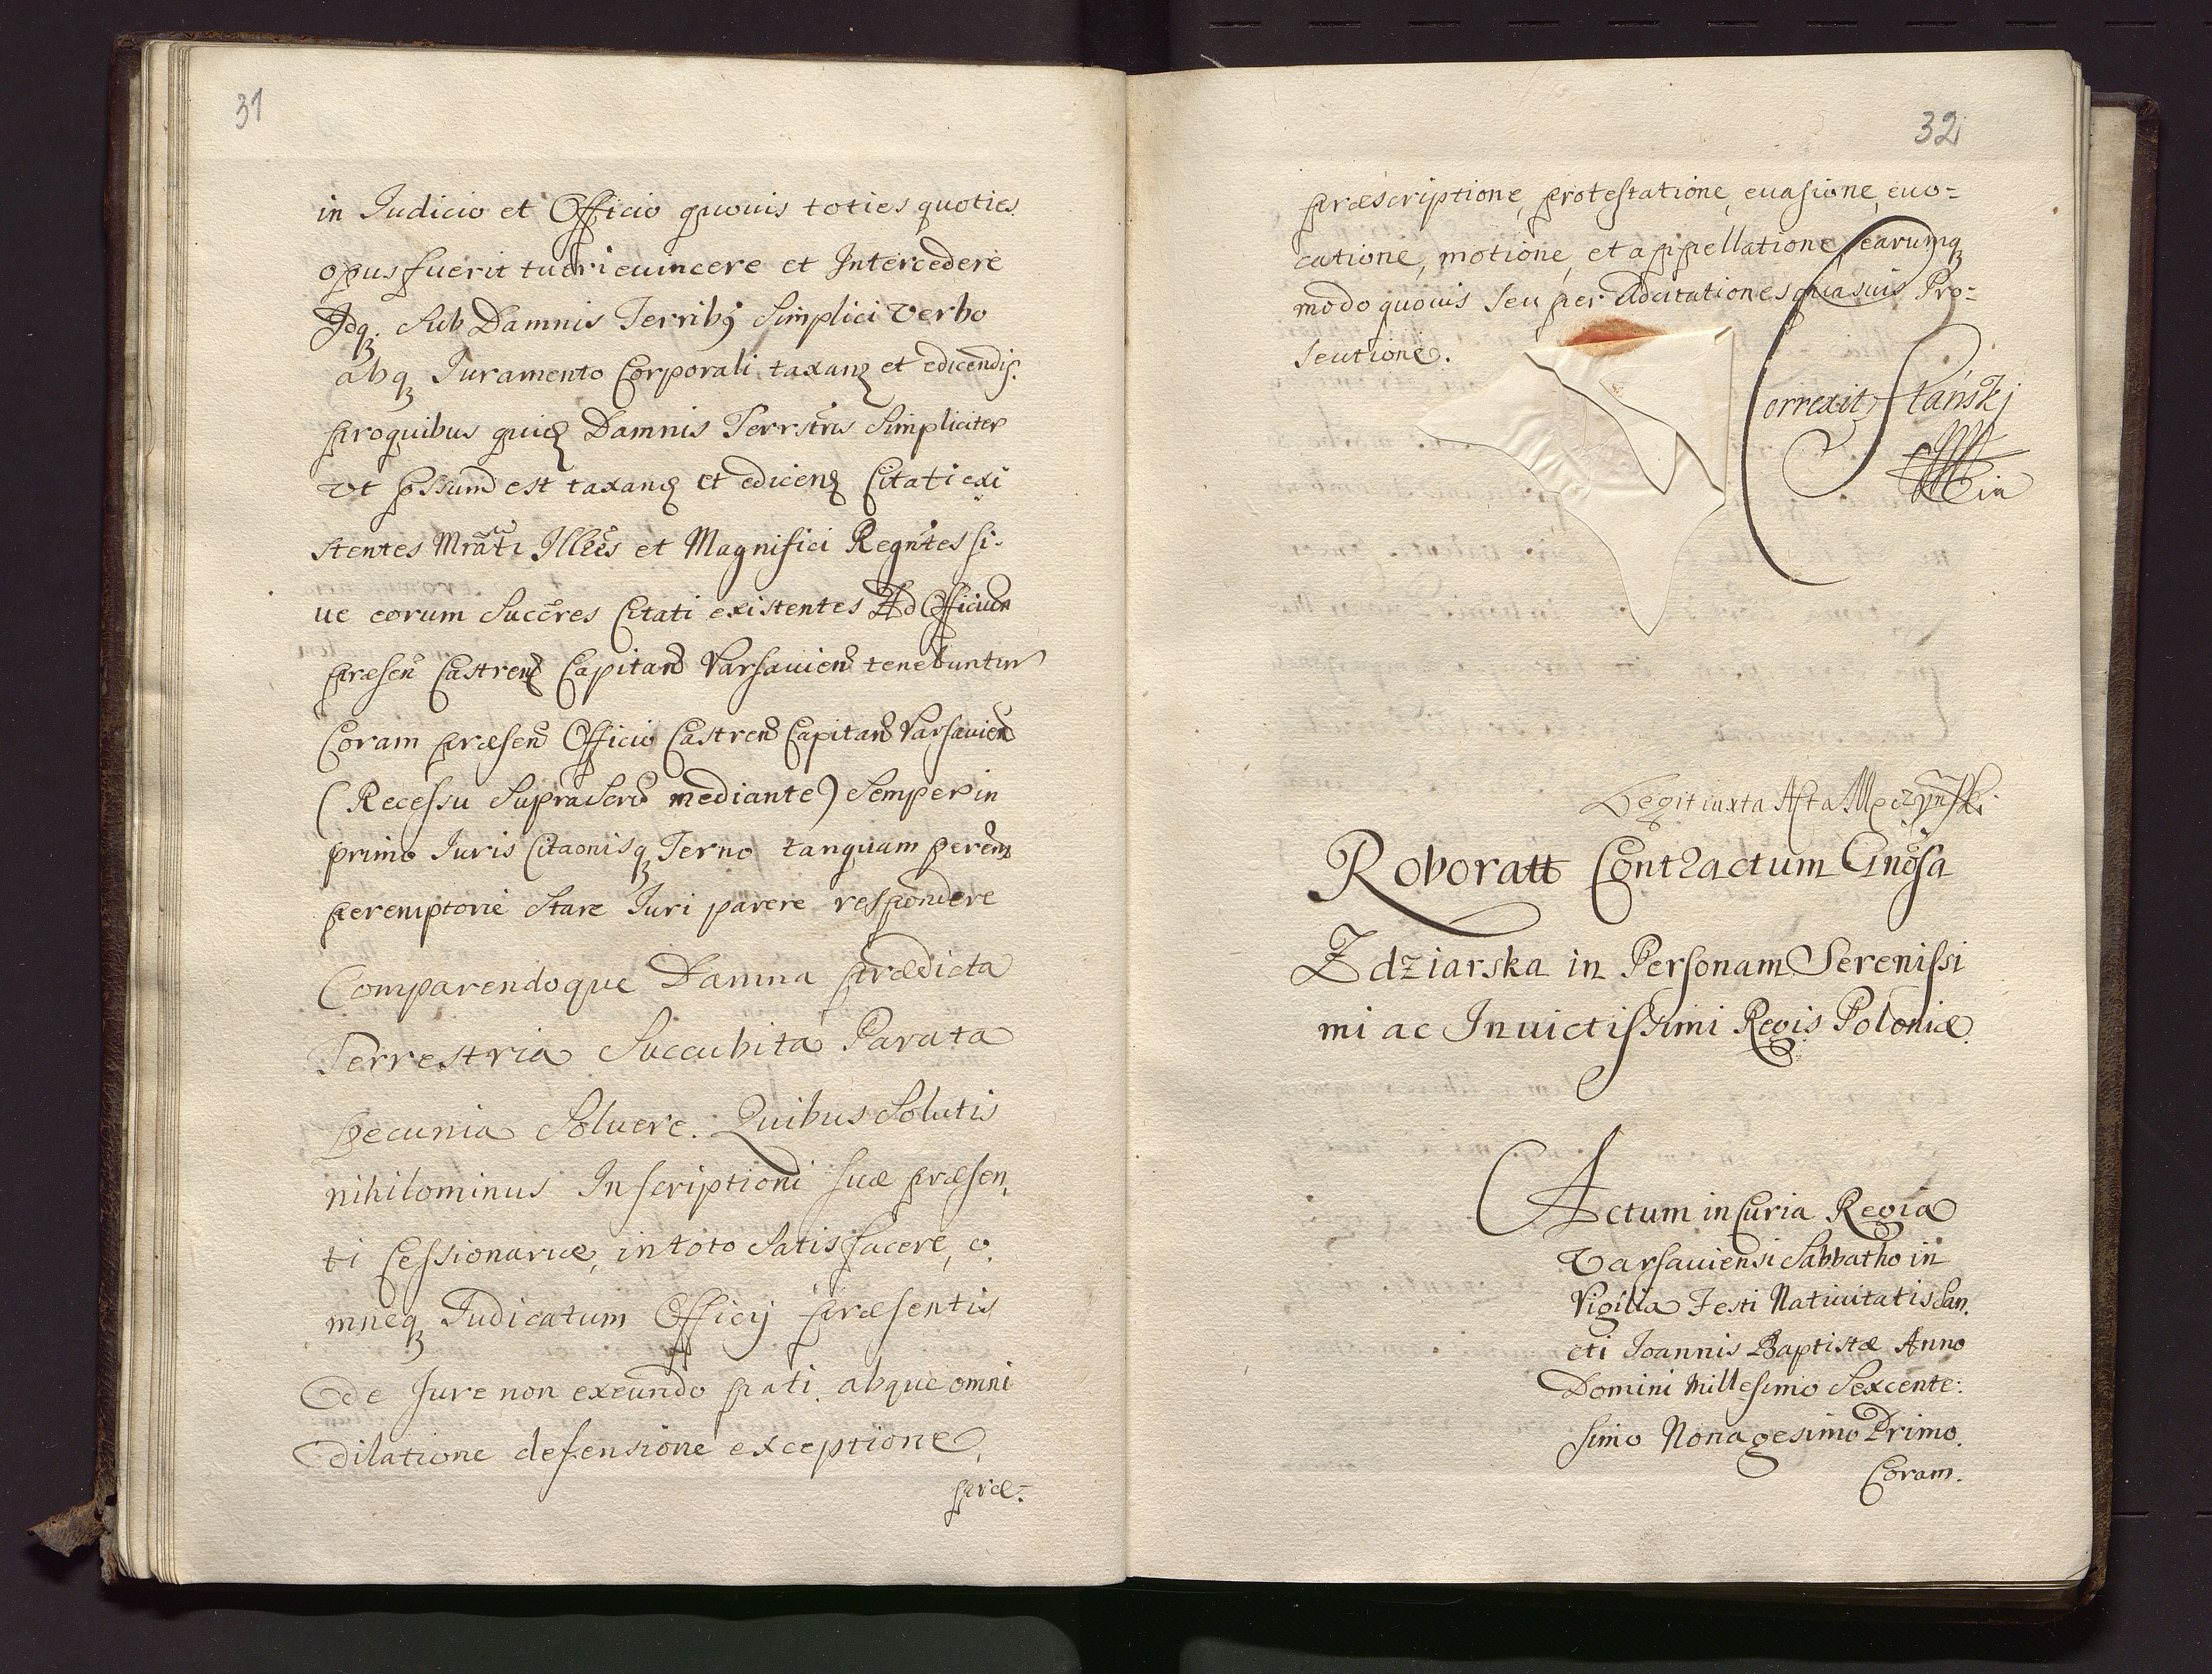 31
in Iudicio et Officio quouis toties quoties
opus fuerit tueri euincere et Intercedere
Idq; Sub Damnis Terribq Simplici verbo
absq Iuramento Corporali taxanq et edicendis.
pro quibus quidq Damnis Terrstris Simpliciter
vt pssum est taxanq et edicenq Citati exi
stentes Mrati Illres et Magnifici Regntes si-
ue eorum Succres Citati existentes Ad Officium
præsen Castren Capitan Varsauien tenebuntur
Coram præsen Officio Castren Capitan Varsauien
(Recessu Suprascr mediante) Semper in
primo Iuris Citaonisq Terno tanquam perem
peremptorie Stare Iuri parere respondere
Comparendoque Damna prædicta
Terrestria Succubita Parata
pecunia Soluere. Quibus Solutis
nihilominus Inscriptioni suæ præsen,
ti Cessionariæ, in toto Satisfacere, o,
mneq Iudicatum Officij præsentis
de Iure non exeundo pati absque omni
dilatione defensione exceptione,
præ-
32
præscriptione, protestatione, euasione, euo=
catione, motione, et appellatione, earumq
modo quouis Seu per Adcitationes quasuis Pro=
secutione.
Correxit Stański
mp
Legit iuxta Acta Męczynski
Roboratt Contractum Gnosa
Zdziarska in Personam Serenissi
mi ac Inuictissimi Regis Poloniæ.
Actum in Curia Regia
Varsauiensi Sabbatho in
Vigilia Festi Natiuitatis San,
cti Ioannis Baptistæ Anno
Domini Millesimo Sexcente:
simo Nonagesimo Primo.
Coram.